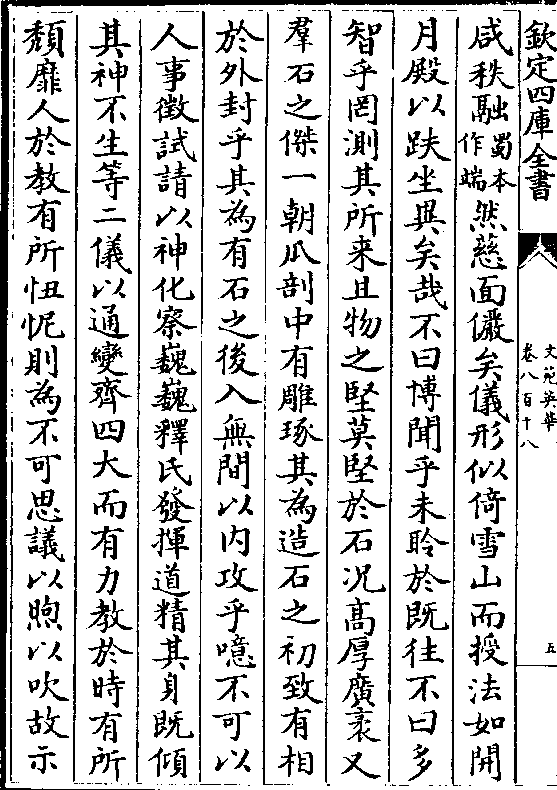 欽定四庫全書
文苑英華
卷八百十八
五
咸秩融蜀本作端然慈面儼矣儀形似倚雪山而授法如開
月殿以趺坐異矣哉不曰博聞乎未聆於既往不曰多
智乎罔測其所来且物之堅莫堅於石况髙厚廣袤又
羣石之傑一朝瓜剖中有雕琢其為造石之初致有相
於外封乎其為有石之後入無間以内攻乎噫不可以
人事徵試請以神化察巍巍釋氏發揮道精其身既傾
其神不生等二儀以通變齊四大而有力教於時有所
頽靡人於教有所忸怩則為不可思議以煦以吹故示